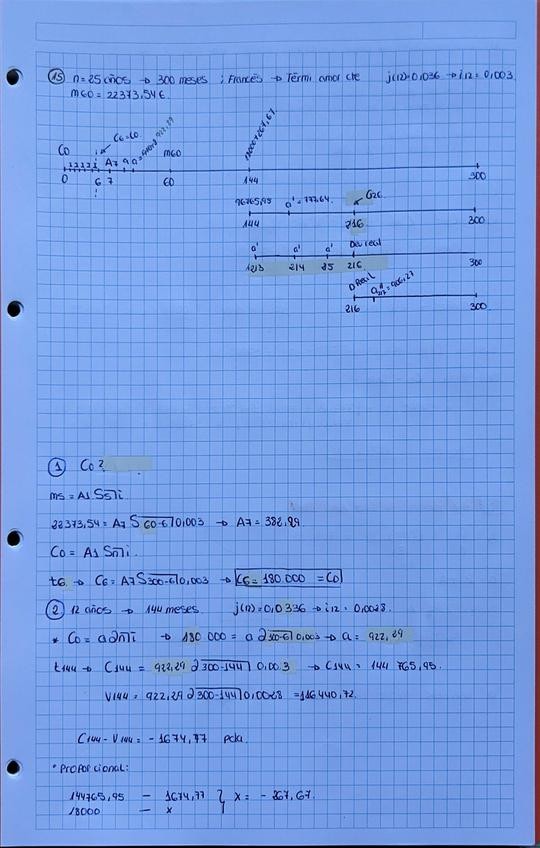 15 n = 25 años → 300 meses ; Francés → Térmi amor cte j(12)=0,036 → i12 = 0,003
m60 = 22373,54€.
C6=C0
C0 A7 a a = 922,29 m60 18000+267,67
0 6 7 60 144 300
96765,95 a' = 777,64. G216
144 216 300
a' a' a' Dev real
213 214 215 216 300
D Real a''217 = 906,27
216 300
1 C0?
ms = A1 Ss̅i
22373,54 = A7 S 60-6 0,003 → A7 = 382,99.
C0 = A1 Sn̅i.
t6 → C6 = A7 S 300-6 0,003 → C6 = 180.000 = C0
2 12 años → 144 meses. j(12)=0,0336 → i12 = 0,0028.
* C0 = a a n̅i → 180 000 = a a 300-6 0,003 → a = 922,29
t144 → C144 = 922,29 a 300-144 0,003 → C144 = 114 765,95.
V144 = 922,29 a 300-144 0,0028 = 116 440,72.
C144 - V144 = - 1674,77 pda.
* Proporcional:
114765,95 — 1674,77 } x = - 267,67.
18000 — x